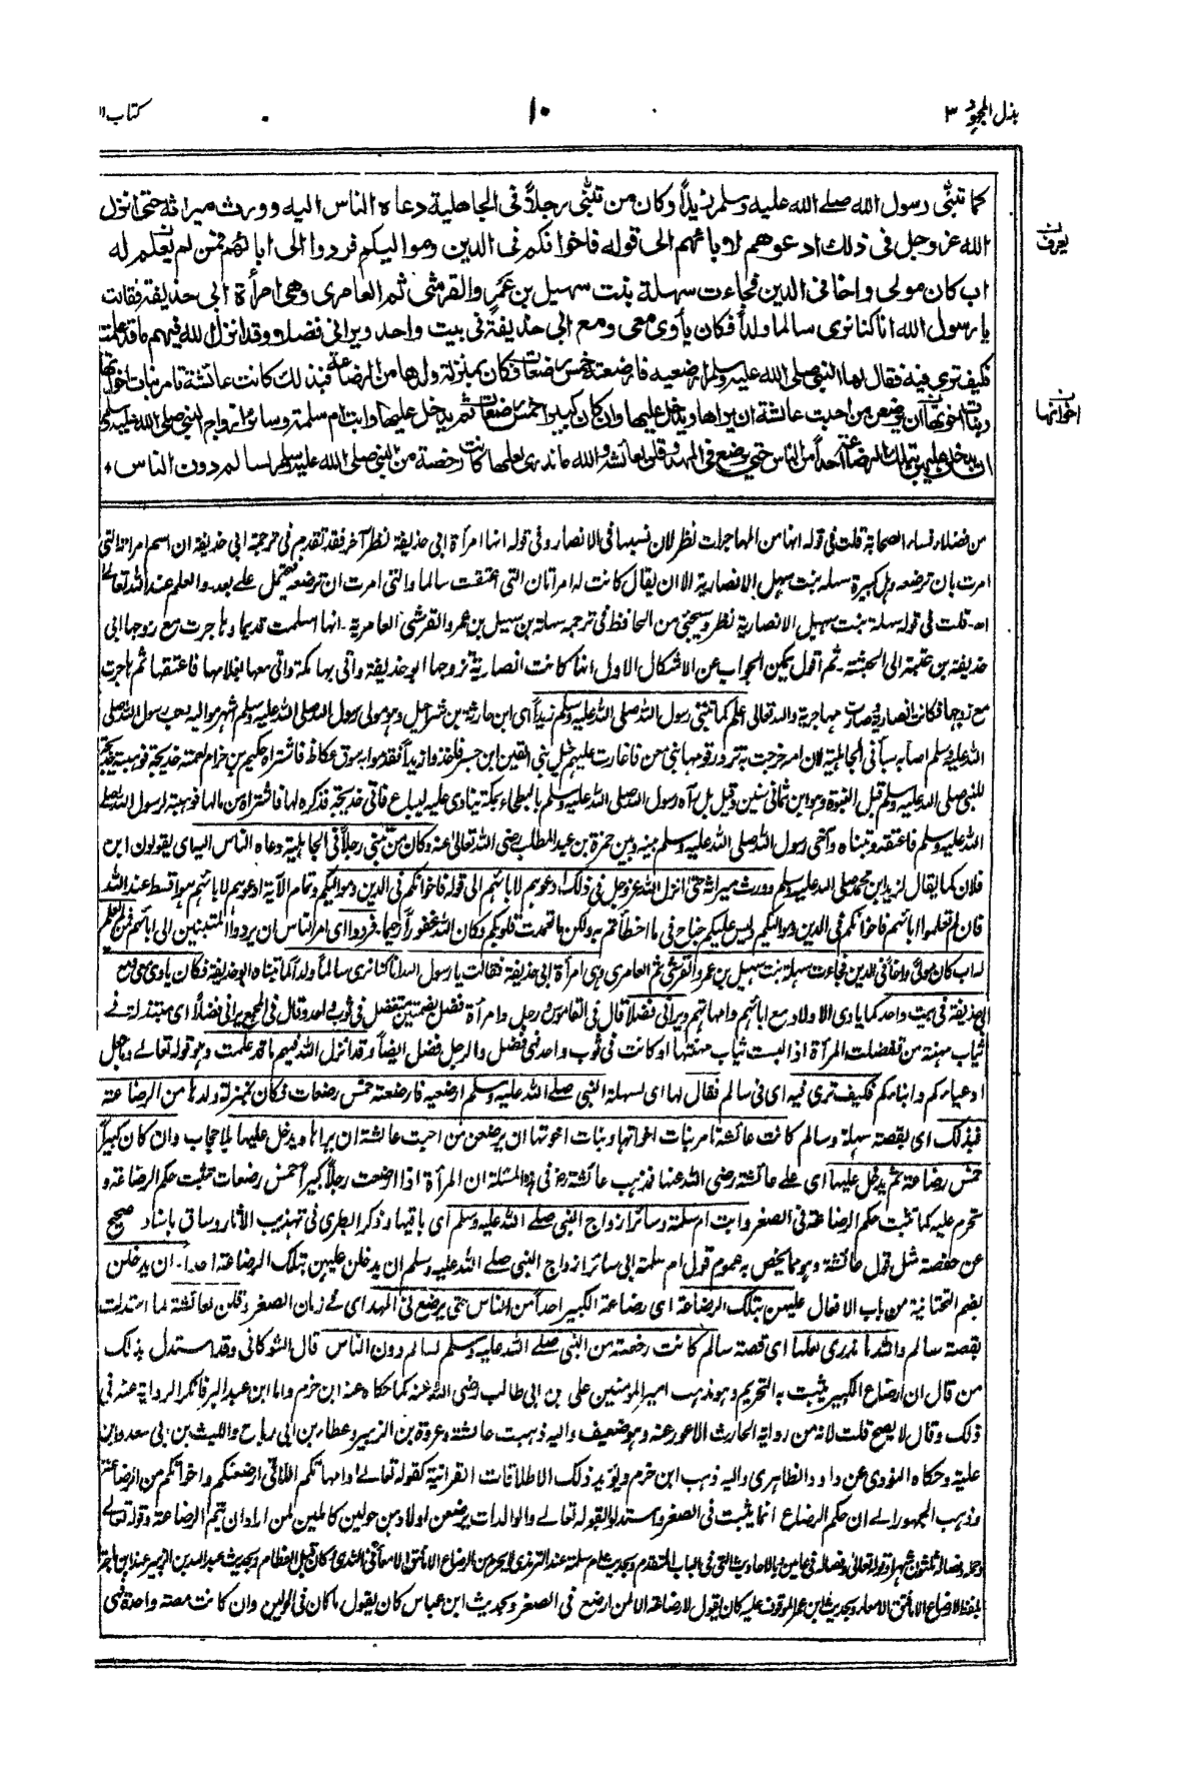 بذل المجهود ٣
١٠
كتاب ا
كما تبنى رسول الله صلى الله عليه وسلم زيداً وكان من تبنى رجلاً فى الجاهلية دعاه الناس اليه وورث ميراثه حتى انزل
الله عز وجل فى ذلك ادعوهم لابائهم الى قوله فاخوانكم فى الدين ومواليكم فردوا الى ابائهم فمن لم يعلم له
يعرف
اب كان مولى واخا فى الدين فجاءت سهلة بنت سهيل بن عمرو القرشى ثم العامرى وهى امرأة ابى حذيفة فقالت
يا رسول الله انا كنا نرى سالما ولداً فكان يأوى معى ومع ابى حذيفة فى بيت واحد ويرانى فضلا وقد انزل الله فيهم ما قد علمت
فكيف ترى فيه فقال لها النبى صلى الله عليه وسلم ارضعيه فارضعته خمس رضعات فكان بمنزلة ولدها من الرضاعة فبذلك كانت عائشة تأمر بنات اخواتها
وبنات اخوتها ان يرضعن من احبت عائشة ان يراها ويدخل عليها وان كان كبيرا خمس رضعات ثم يدخل عليها وابت ام سلمة وسائر ازواج النبى صلى الله عليه وسلم
اخواتها
ان يدخلن عليهن بتلك الرضاعة احداً من الناس حتى يرضع فى المهد وقلن لعائشة والله ما ندرى لعلها كانت رخصة من النبى صلى الله عليه وسلم لسالم دون الناس
من فضلاء نساء الصحابة قلت فى قوله انها من المهاجرات نظر لان نسبها فى الانصار وفى قوله انها امرأة ابى حذيفة نظر آخر فقد تقدم فى ترجمة ابى حذيفة ان اسم امرأته التى
امرت بان ترضعه وهل كبيرة سهلة بنت سهيل الانصارية الا ان يقال كانت له امرأتان التى اعتقت سالما والتى امرت ان ترضعه محتمل على بعد والعلم عند الله تعالى
اه- قلت فى قوله سهلة بنت سهيل الانصارية نظر وسيجئ من الحافظ فى ترجمة سهلة بن سهيل بن عمرو القرشى العامرية - انها اسلمت قديما وهاجرت مع زوجها ابى
حذيفة بن عتبة الى الحبشة - ثم اقول يمكن الجواب عن الاشكال الاول انها كانت انصارية تزوجها ابو حذيفة واتى بها مكة واتى معها بغلامها فاعتقها ثم هاجرت
مع زوجها فكانت انصارية وصارت مهاجرية والله تعالى اعلم كما تبنى رسول الله صلى الله عليه وسلم زيداً اى ابن حارثة بن شراحيل وهو مولى رسول الله صلى الله عليه وسلم اشهر مواليه يحب رسول الله صلى
الله عليه وسلم اصابه سبا فى الجاهلية لان امه خرجت به تزور قومها بنى معن فاغارت عليهم خيل بنى القين ابن جسر فاخذوا زيداً فقدموا به سوق عكاظ فاشتراه حكيم بن حزام لعمته خديجة فوهبته خديجة
للنبى صلى الله عليه وسلم قبل النبوة وهو ابن ثمانى سنين وقيل بل رآه رسول الله صلى الله عليه وسلم بالبطحاء بمكة ينادى عليه ليباع فاتى خديجة فذكره لها فاشتراه من مالها فوهبته لرسول الله صلى
الله عليه وسلم فاعتقه وتبناه وآخى رسول الله صلى الله عليه وسلم بينه وبين حمزة بن عبد المطلب رضى الله تعالى عنه وكان من تبنى رجلاً فى الجاهلية دعاه الناس اليه اى يقولون ابن
فلان كما يقال لزيد ابن محمد صلى الله عليه وسلم وورث ميراثه حتى انزل الله عز وجل فى ذلك ادعوهم لابائهم الى قوله فاخوانكم فى الدين ومواليكم وتمام الآية ادعوهم لابائهم هو اقسط عند الله
فان لم تعلموا ابائهم فاخوانكم فى الدين ومواليكم وليس عليكم جناح فى ما اخطأتم به ولكن ما تعمدت قلوبكم وكان الله غفوراً رحيما - فردوا اى امر الناس ان يردوا المتبنين الى ابائهم فمن لم يعلم
له اب كان مولى واخاً فى الدين فجاءت سهلة بنت سهيل بن عمرو القرشى ثم العامرى وهى امرأة ابى حذيفة فقالت يا رسول الله انا كنا نرى سالماً ولداً كما تبناه ابو حذيفة فكان يأوى معى ومع
ابى حذيفة فى بيت واحد كما يأوى الاولاد مع ابائهم وامهاتهم ويرانى فضلاً قال فى القاموس رجل وامرأة فضل بضمتين متفضل فى ثوب واحد وقال فى المجمع يرانى فضلاً اى متبذلة فى
ثياب مهنة من تفضلت المرأة اذا لبست ثياب مهنتها او كانت فى ثوب واحد فهى فضل والرجل فضل ايضاً وقد انزل الله فيهم ما قد علمت وهو قوله تعالى وما جعل
ادعياءكم وابناءكم فكيف ترى فيه اى فى سالم فقال لها اى لسهلة النبى صلى الله عليه وسلم ارضعيه فارضعته خمس رضعات فكان بمنزلة ولدها من الرضاعة
فبذلك اى بقصة سهلة وسالم كانت عائشة تأمر بنات اخواتها وبنات اخوتها ان يرضعن من احبت عائشة ان يراها ويدخل عليها بلا حجاب وان كان كبيراً
خمس رضاعة ثم يدخل عليها اى على عائشة رضى الله عنها فذهب عائشة رض فى هذه المسئلة ان المرأة اذا ارضعت رجلاً كبيراً خمس رضعات تثبت حكم الرضاعة و
تحرم عليه كما تثبت حكم الرضاعة فى الصغر وابت ام سلمة وسائر ازواج النبى صلى الله عليه وسلم اى باقيها وذكر الطبرى فى تهذيب الآثار وساق باسناد صحيح
عن حفصة مثل قول عائشة وهو مما يخص به عموم قول ام سلمة ابى سائر ازواج النبى صلى الله عليه وسلم ان يدخلن عليهن بتلك الرضاعة احداً - ان يدخلن
بضم التحتانية من باب الافعال عليهن بتلك الرضاعة اى رضاعة الكبير احداً من الناس حتى يرضع فى المهد اى فى زمان الصغر وقلن لعائشة لما استدلت
بقصة سالم والله ما ندرى لعلها اى قصة سالم كانت رخصة من النبى صلى الله عليه وسلم لسالم دون الناس قال الشوكانى وقد استدل بذلك
من قال ان ارضاع الكبير يثبت به التحريم وهو مذهب امير المؤمنين على بن ابى طالب رضى الله عنه كما حكاه عنه ابن حزم واما ابن عبد البر فانكر الرواية عنه فى
ذلك وقال لا يصح قلت لانه من رواية الحارث الاعور عنه وهو ضعيف واليه ذهبت عائشة وعروة بن الزبير وعطاء بن ابى رباح والليث بن ابى سعد وابن
علية وحكاه النووى عن داود الظاهرى واليه ذهب ابن حزم ويؤيد ذلك الاطلاقات القرانية كقوله تعالى وامهاتكم اللاتى ارضعنكم واخواتكم من الرضاعة
وذهب الجمهور الى ان حكم الرضاع انما يثبت فى الصغر واستدلوا بقوله تعالى والوالدات يرضعن اولادهن حولين كاملين لمن اراد ان يتم الرضاعة وقوله تعالى
وحمله وفصاله ثلثون شهرا وقوله تعالى وفصاله فى عامين وبالاحاديث التى فى الباب المتقدم وبحديث ام سلمة عند الترمذى لا يحرم من الرضاع الا ما فتق الامعاء فى الثدى وكان قبل الفطام وبحديث عبد الله بن الزبير عند ابن ماجة
بلفظ لا رضاع الا ما فتق الامعاء وبحديث ابن عمر الموقوف عليه كان يقول لا رضاعة الا لمن ارضع فى الصغر وبحديث ابن عباس كان يقول ما كان فى الحولين وان كانت مصة واحدة فهى